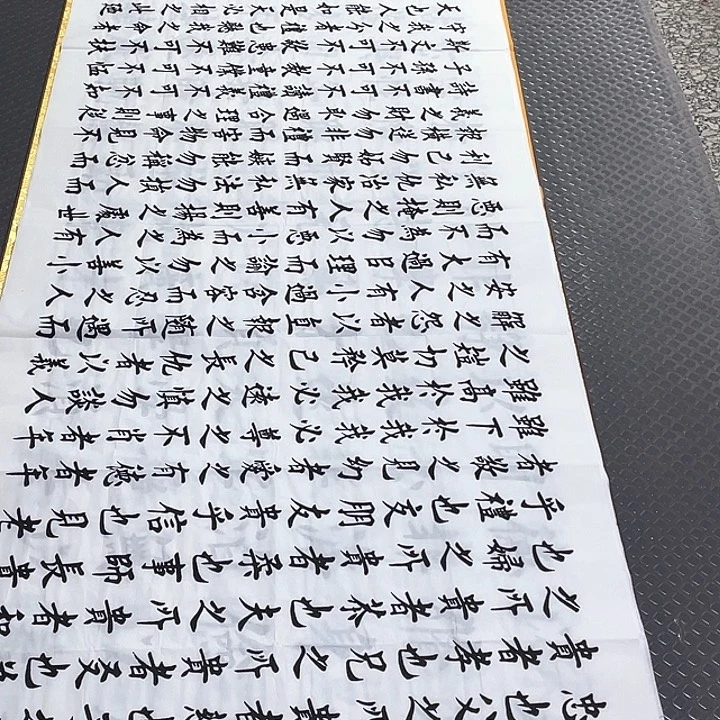 忠也父之所貴者慈也子之所
貴者孝也兄之所貴者友也弟
之所貴者恭也夫之所貴者和
也婦之所貴者柔也事師長貴
乎禮也交朋友貴乎信也見老
者敬之見幼者愛之有德者年
雖下於我我必尊之不肖者年
雖高於我我必遠之慎勿談人
之短切莫矜己之長仇者以義
解之怨者以直報之隨所遇而
安之人有小過含容而忍之人
有大過以理而諭之勿以善小
而不為勿以惡小而為之人有
惡則掩之人有善則揚之處世
無私仇治家無私法勿損人而
利己勿妒賢而嫉能勿稱忿而
報橫逆勿非禮而害物命見不
義之財勿取遇合理之事則從
詩書不可不讀禮義不可不知
子孫不可不教童僕不可不恤
斯文不可不敬患難不可不扶
守我之分者禮也聽我之命者
天也人能如是天必相之此